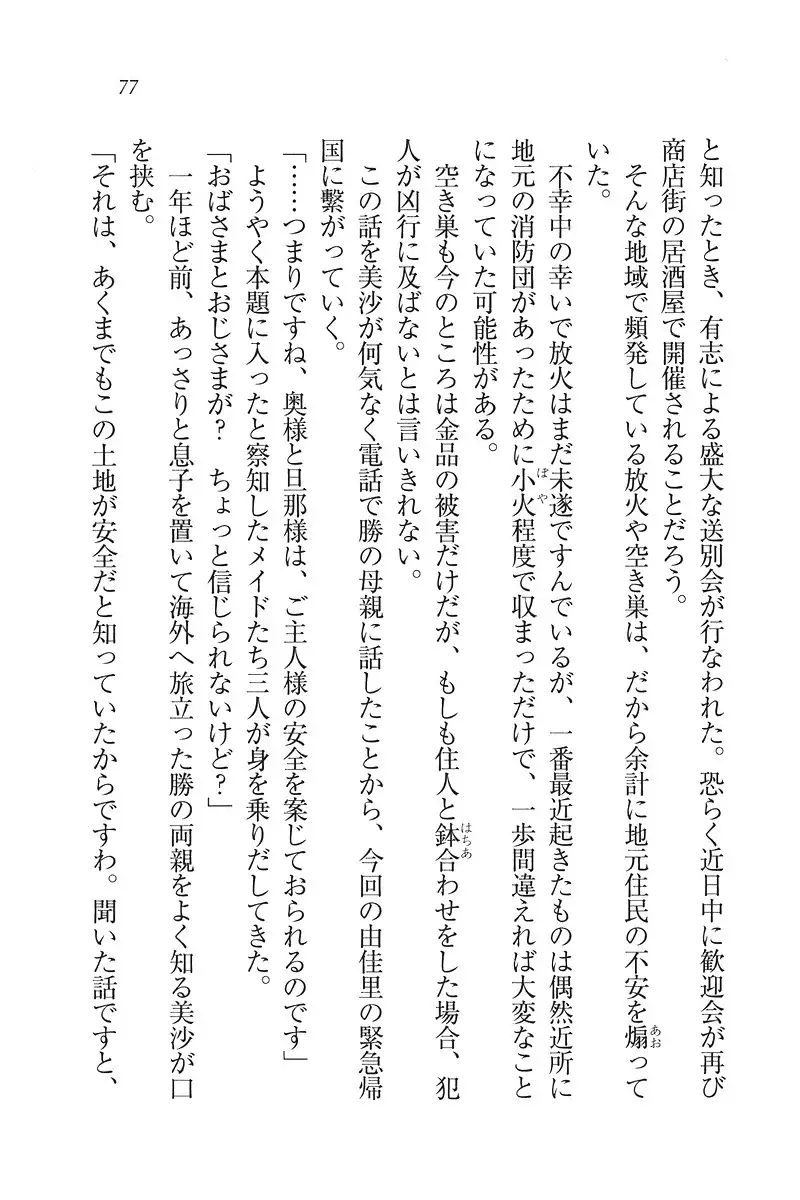 77
と知ったとき、有志による盛大な送別会が行なわれた。恐らく近日中に歓迎会が再び
商店街の居酒屋で開催されることだろう。
　そんな地域で頻発している放火や空き巣は、だから余計に地元住民の不安を煽って
いた。
　不幸中の幸いで放火はまだ未遂ですんでいるが、一番最近起きたものは偶然近所に
地元の消防団があったために小火程度で収まっただけで、一歩間違えれば大変なこと
になっていた可能性がある。
　空き巣も今のところは金品の被害だけだが、もしも住人と鉢合わせをした場合、犯
人が凶行に及ばないとは言いきれない。
　この話を美沙が何気なく電話で勝の母親に話したことから、今回の由佳里の緊急帰
国に繋がっていく。
「……つまりですね、奥様と旦那様は、ご主人様の安全を案じておられるのです」
　ようやく本題に入ったと察知したメイドたち三人が身を乗りだしてきた。
「おばさまとおじさまが？　ちょっと信じられないけど？」
　一年ほど前、あっさりと息子を置いて海外へ旅立った勝の両親をよく知る美沙が口
を挟む。
「それは、あくまでもこの土地が安全だと知っていたからですわ。聞いた話ですと、